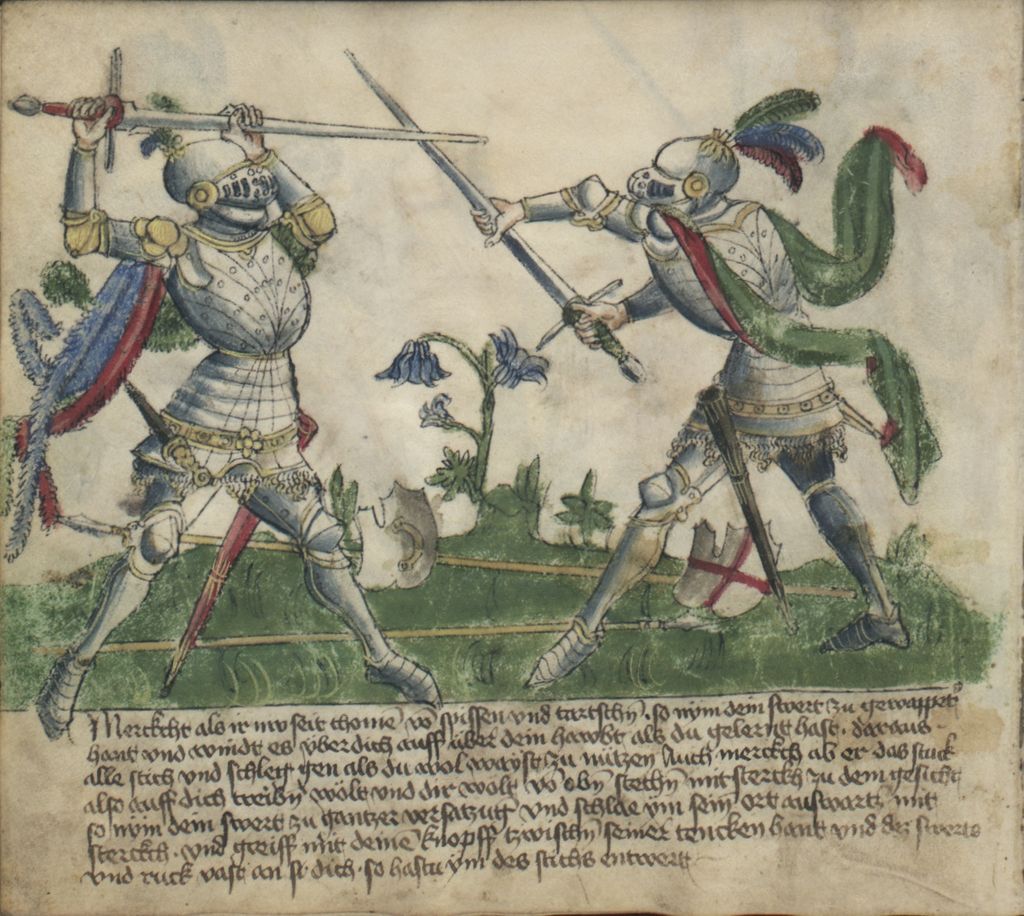 Merckcht als ir nw seit chomē vō spissen vnd tartschn̄ . so nym dein swert zu gewappēter
hant vnd windt es vber dich auff über dein hawbt als du gelernt hast . daraus
alle stich vnd schleg gen als du wol wayst zu nützen Auch merckch ab er das stuck
also auff dich treibn̄ wolt vnd dir wolt vō obn̄ stechn̄ mit sterckh zu dem gesicht
so nym dein swert zu gantzer versatzūg vnd schlag ym sein ort auswartz mit
sterckch . vnd greiff mit deinē knopff tzwischn̄ seiner tencken hant vnd des swerts
vnd ruck vast an dich . so hastu ym des stichs entwert